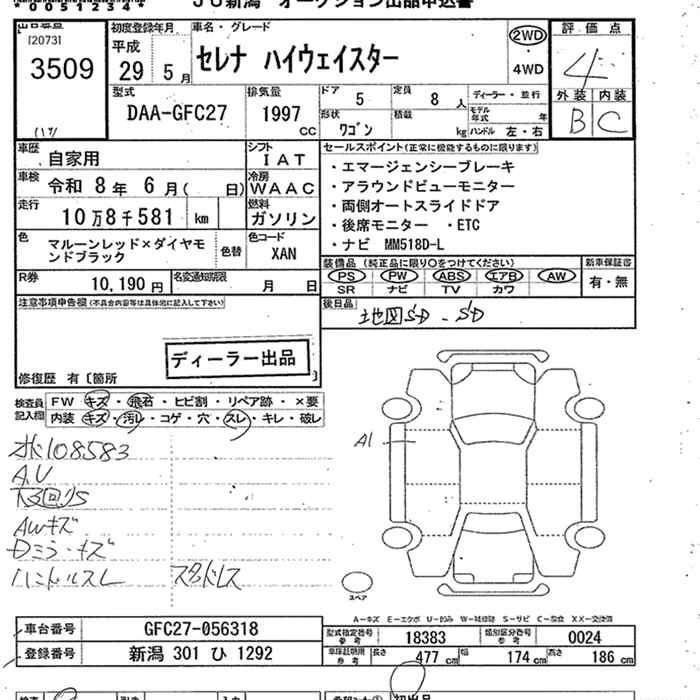 * 0 0 5 1 2 3 4 *
JU新潟 オークション出品申込書
[2073]
3509
初度登録年月
平成
29 5 月
車名・グレード
セレナ ハイウェイスター
2WD
・
4WD
評価点
4
外装 内装
B C
型式
DAA-GFC27
排気量
1997
CC
ドア 5
定員 8 人
ディーラー・並行
モデル年式 年
形状 ワゴン
積載 kg
ハンドル 左・右
車歴 自家用
シフト IAT
車検 令和 8 年 6 月( 日)
冷房 WAAC
走行 10万8千581 km
燃料 ガソリン
色 マルーンレッド×ダイヤモンドブラック
色替
色コード XAN
R券 10,190 円
名変通知期限 月 日
セールスポイント(正常に機能するものに限ります)
・エマージェンシーブレーキ
・アラウンドビューモニター
・両側オートスライドドア
・後席モニター ・ETC
・ナビ MM518D-L
装備品(純正品に限り○をつけてください)
PS PW ABS エアB AW
SR ナビ TV カワ
新車保証書
有・無
後日品
地図SD . SD
注意事項申告欄(不具合内容等は具体的に記入して下さい)
ディーラー出品
修復歴 有〔箇所 〕
検査員記入欄
FW キズ・飛石・ヒビ割・リペア跡・×要
内装 キズ・汚レ・コゲ・穴・スレ・キレ・破レ
ホ108583
A.U
下回りS
AWキズ
Dミラーキズ
ハンドルスレ スタッドレス
A1
スペア
A－キズ E－エクボ U－凹み W－補修跡 S－サビ C－腐食 XX－交換済
車台番号 GFC27-056318
登録番号 新潟 301 ひ 1292
型式指定番号 参考 18383
類別区分番号 参考 0024
車庫証明用 参考 長さ 477 cm 幅 174 cm 高さ 186 cm